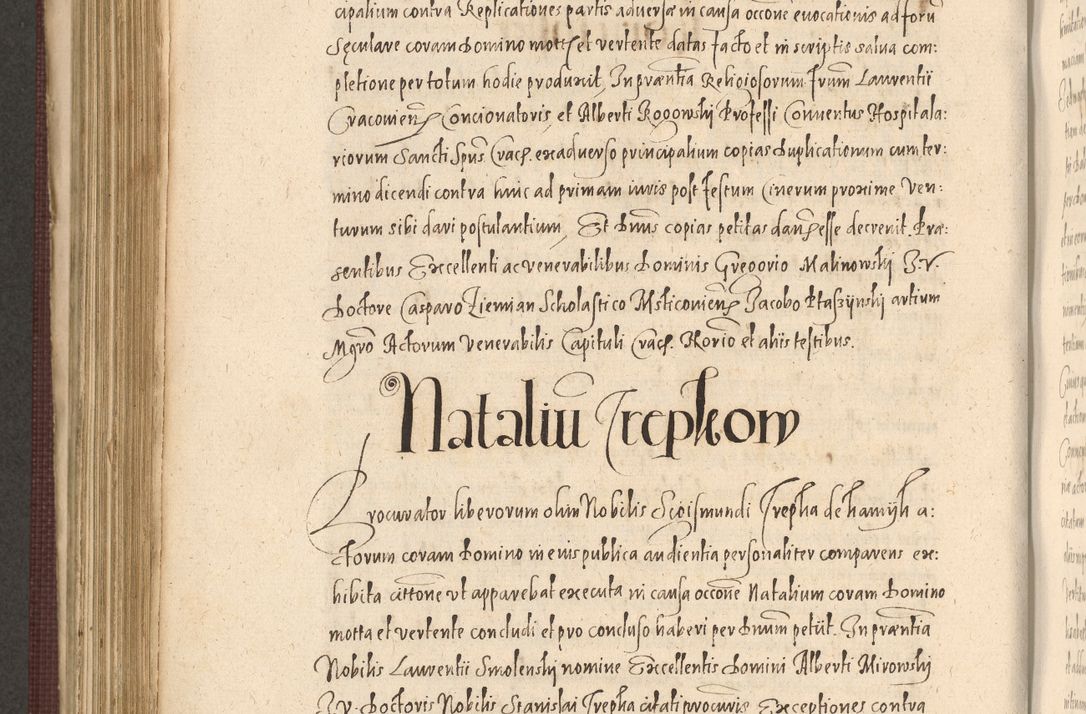 cipalium contra Replicationes partis adversæ in causa occone evocationis ad foru
Sęculare coram Domino mottę et vertente datas facto et in scriptis salva com:
pletione per totum hodie produxit, In præntia Religiosorum frum Laurentii
Cracovien Concionatoris, et Alberti Rogowskj Professi Conventus Hospitala:
riorum Sancti Spus Crac. ex adverso principalium copias Duplicationum cum ter:
mino dicendi contra hinc ad primam iuris post festum Cinerum proxime Ven:
turum sibi dari postulantium, Et Dnus copias petitas dan esse decrevit. Præ:
sentibus Excellenti ac venerabilibus Dominis Gregorio Malinowskj I. V.
Doctore Casparo Ziemian Scholastico Mstticovien Jacobo Ptaszynskj artium
Mgro Actorum Venerabilis Capituli Crac. Norio et aliis testibus.
Nataliu Trepkow
Procurator liberorum olim Nobilis Sigismundi Trepka de hamijh a:
ctorum coram Domino in eius publica audientia personaliter comparens ex:
hibita cittone ut apparebat executa in causa occone Natalium coram Domino
motta et vertente concludi et pro concluso haberi per Dnum petiit. In præntia
Nobilis Laurentii Smolenskj nomine Excellentis Domini Alberti Mirowskj
I. V. Doctoris Nobilis Stanislai Trepka citati procuris Exceptiones contra